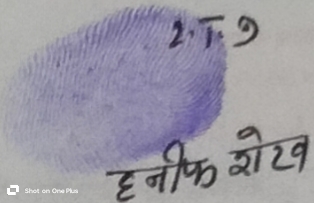 2.T.9
हनीफ शेख
Shot on One Plus